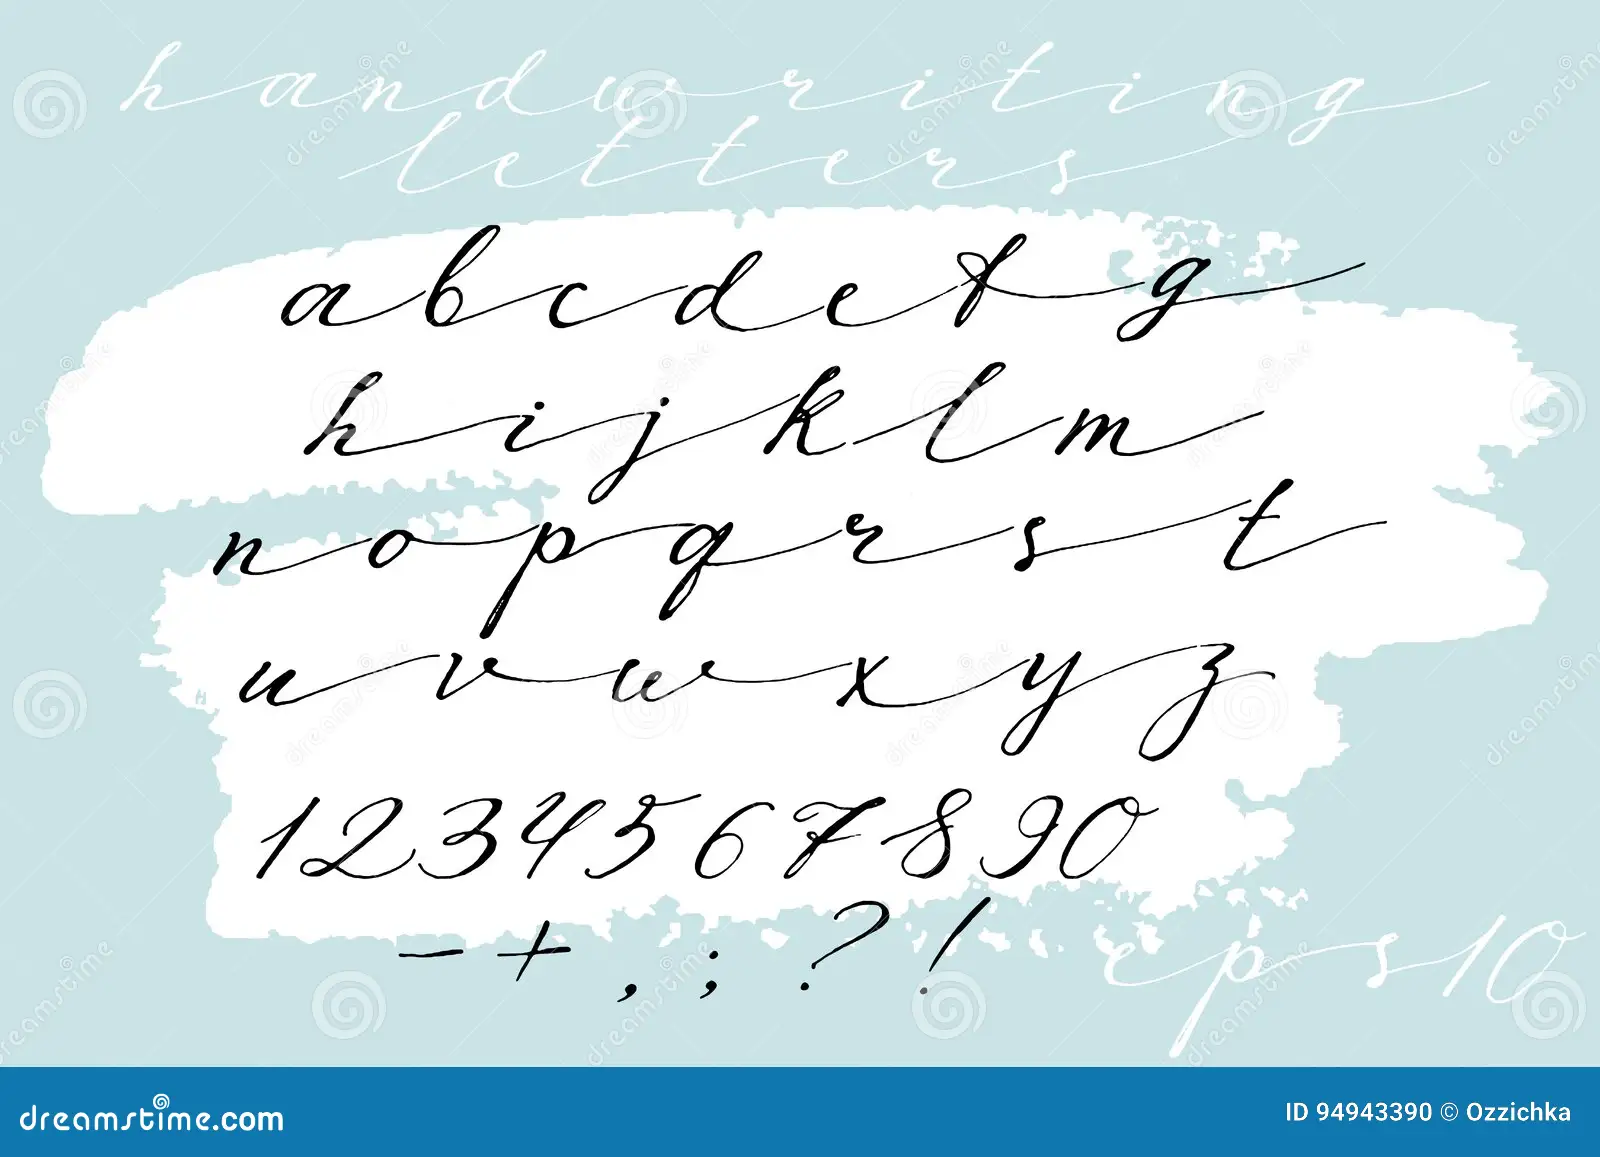 handwriting
letters
abcdefg
hijklm
nopqrst
uvwxyz
1234567890
- + , ; ? !
eps10
dreamstime.com
ID 94943390 © Ozzichka